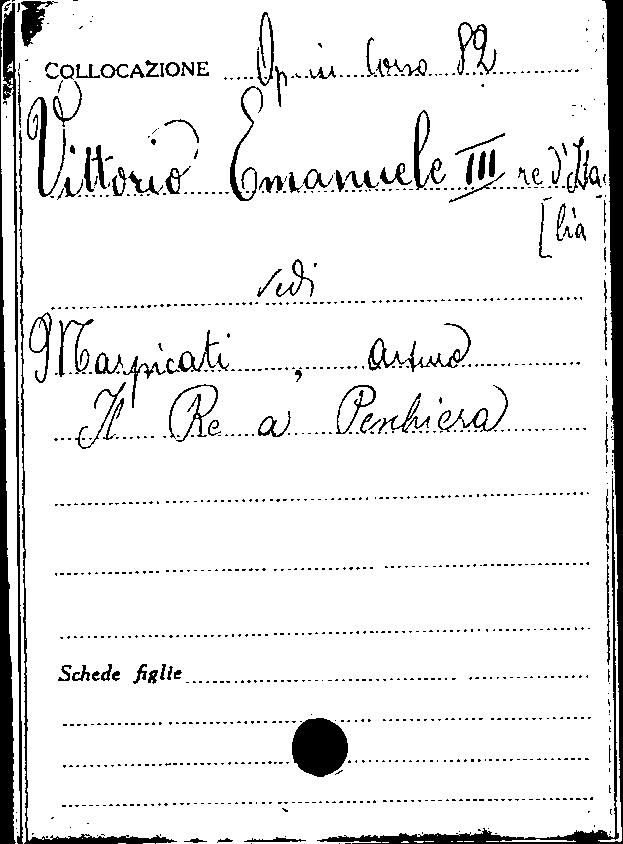 COLLOCAZIONE Op. in Corso 82
Vittorio Emanuele III re d'Ita
[lia
vedi
Marpicati, Arturo
Il Re a Peschiera
Schede figlie